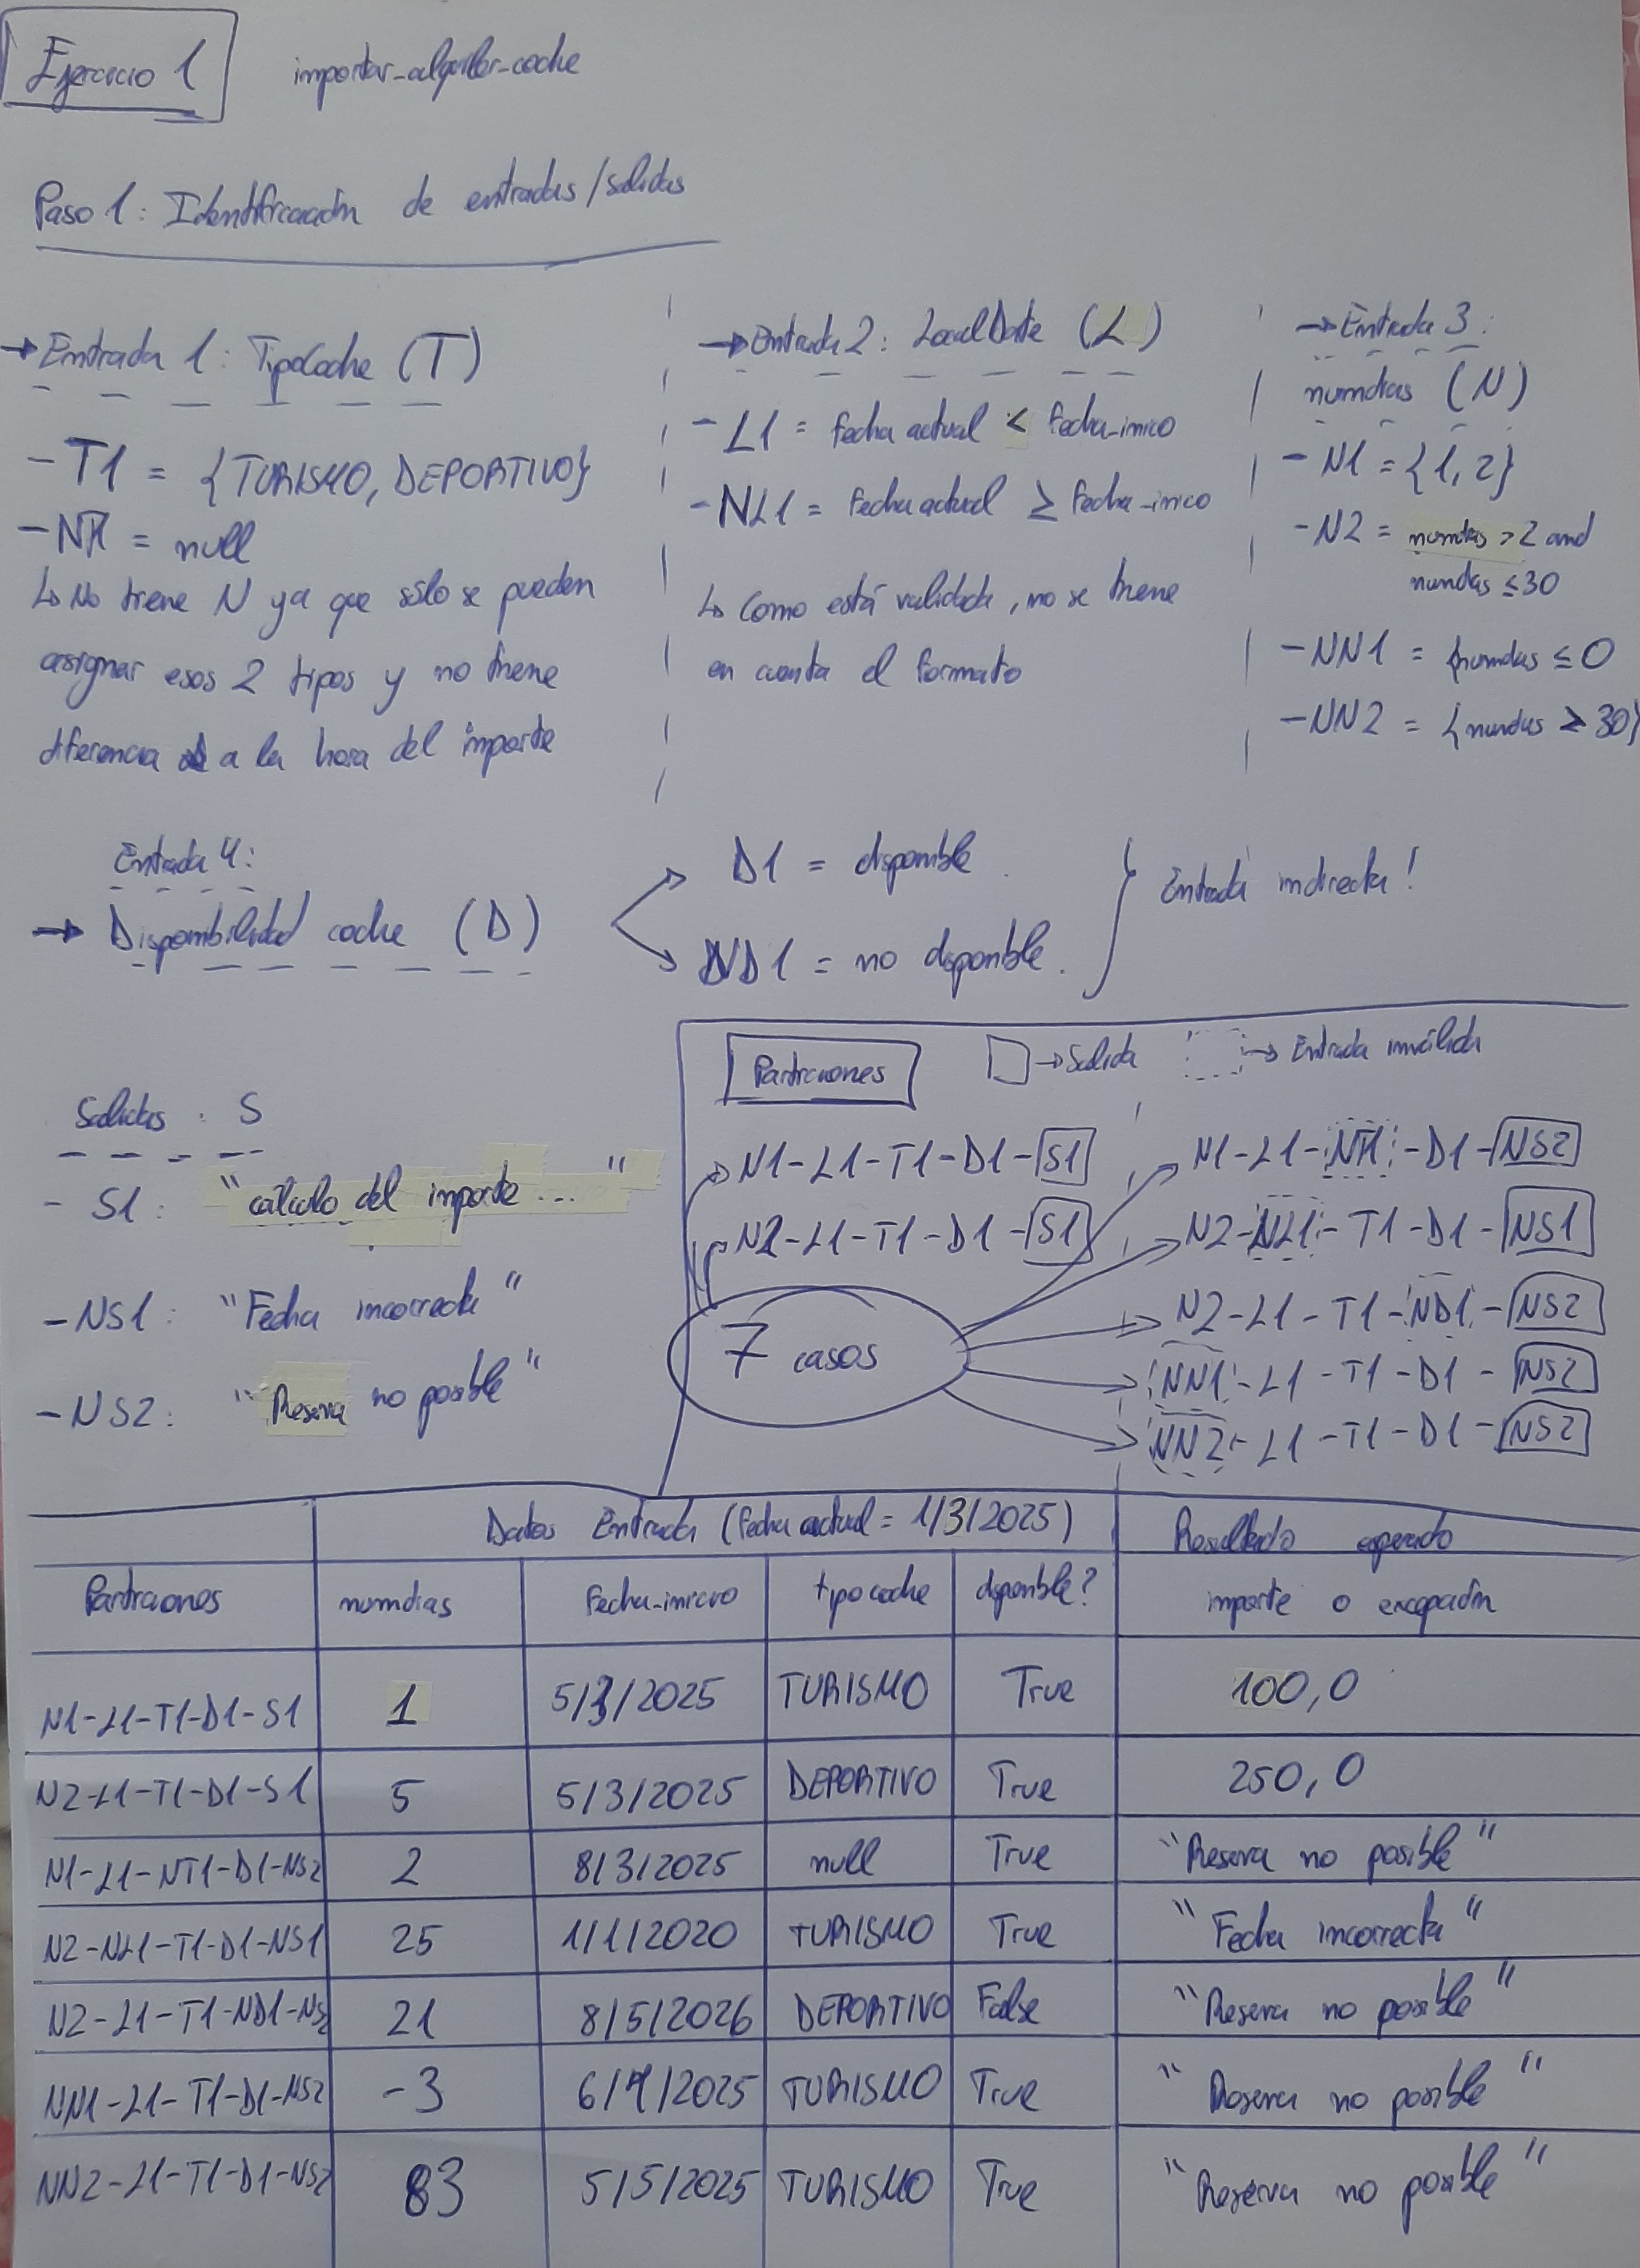 Ejercicio 1
importar_alquiler_coche
Paso 1: Identificación de entradas/salidas
→ Entrada 1: TipoCoche (T)
- T1 = {TURISMO, DEPORTIVO}
- NT1 = null
↳ No tiene N ya que sólo se pueden
asignar esos 2 tipos y no tiene
diferencia a la hora del importe
→ Entrada 2: LocalDate (L)
- L1 = fecha actual < fecha_inicio
- NL1 = fecha actual ≥ fecha_inicio
↳ Como está validada, no se tiene
en cuenta el formato
→ Entrada 3:
numdias (N)
- N1 = {1, 2}
- N2 = numdias > 2 and
numdias ≤ 30
- NN1 = {numdias ≤ 0
- NN2 = {numdias ≥ 30}
Entrada 4:
→ Disponibilidad coche (D)
D1 = disponible
ND1 = no disponible.
Entrada indirecta!
Salidas: S
- S1: "cálculo del importe ... "
- NS1: "Fecha incorrecta"
- NS2: "Reserva no posible"
Particiones
→ Salida
→ Entrada inválida
N1-L1-T1-D1-S1
N2-L1-T1-D1-S1
7 casos
N1-L1-NT1-D1-NS2
N2-NL1-T1-D1-NS1
N2-L1-T1-ND1-NS2
NN1-L1-T1-D1-NS2
NN2-L1-T1-D1-NS2
Datos Entrada (fecha actual = 1/3/2025) Resultado esperado
Particiones numdias fecha_inicio tipocoche disponible? importe o excepción
N1-L1-T1-D1-S1 1 5/3/2025 TURISMO True 100,0
N2-L1-T1-D1-S1 5 5/3/2025 DEPORTIVO True 250,0
N1-L1-NT1-D1-NS2 2 8/3/2025 null True "Reserva no posible"
N2-NL1-T1-D1-NS1 25 1/1/2020 TURISMO True "Fecha incorrecta"
N2-L1-T1-ND1-NS2 21 8/5/2026 DEPORTIVO False "Reserva no posible"
NN1-L1-T1-D1-NS2 -3 6/4/2025 TURISMO True "Reserva no posible"
NN2-L1-T1-D1-NS2 83 5/5/2025 TURISMO True "Reserva no posible"